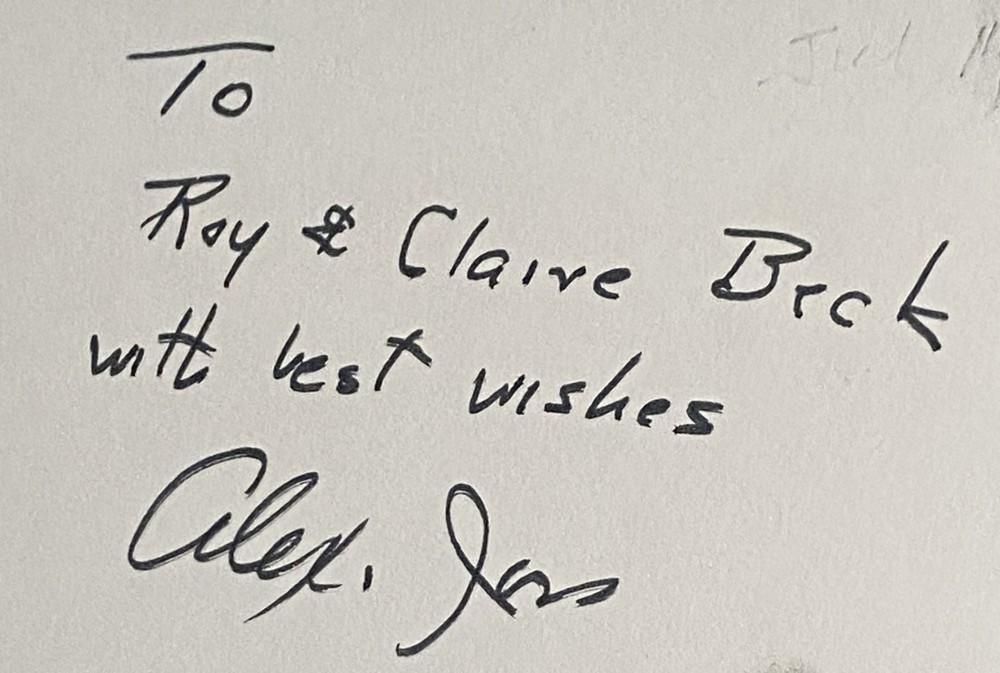 To
Roy & Claire Beck
with best wishes
Alex.